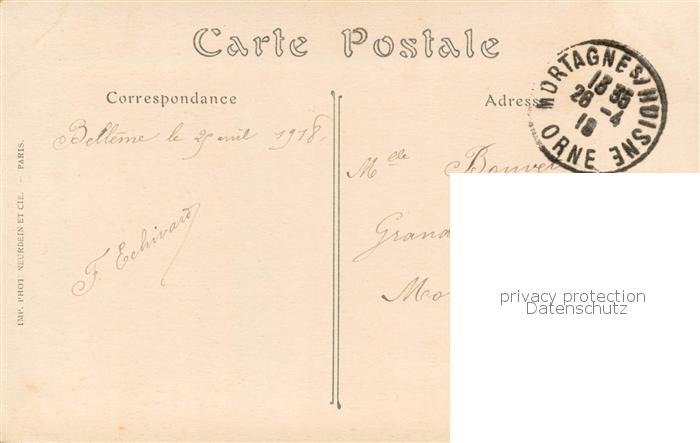 Carte Postale
Correspondance
Adresse
MORTAGNE S/HUISNE
13 35
26 -4
18
ORNE
Bellême le 25 avril 1918
Mlle Bouve
Grand
Mo
F. Echivard
IMP. PHOT. NEURDEIN ET CIE. — PARIS.
privacy protection
Datenschutz